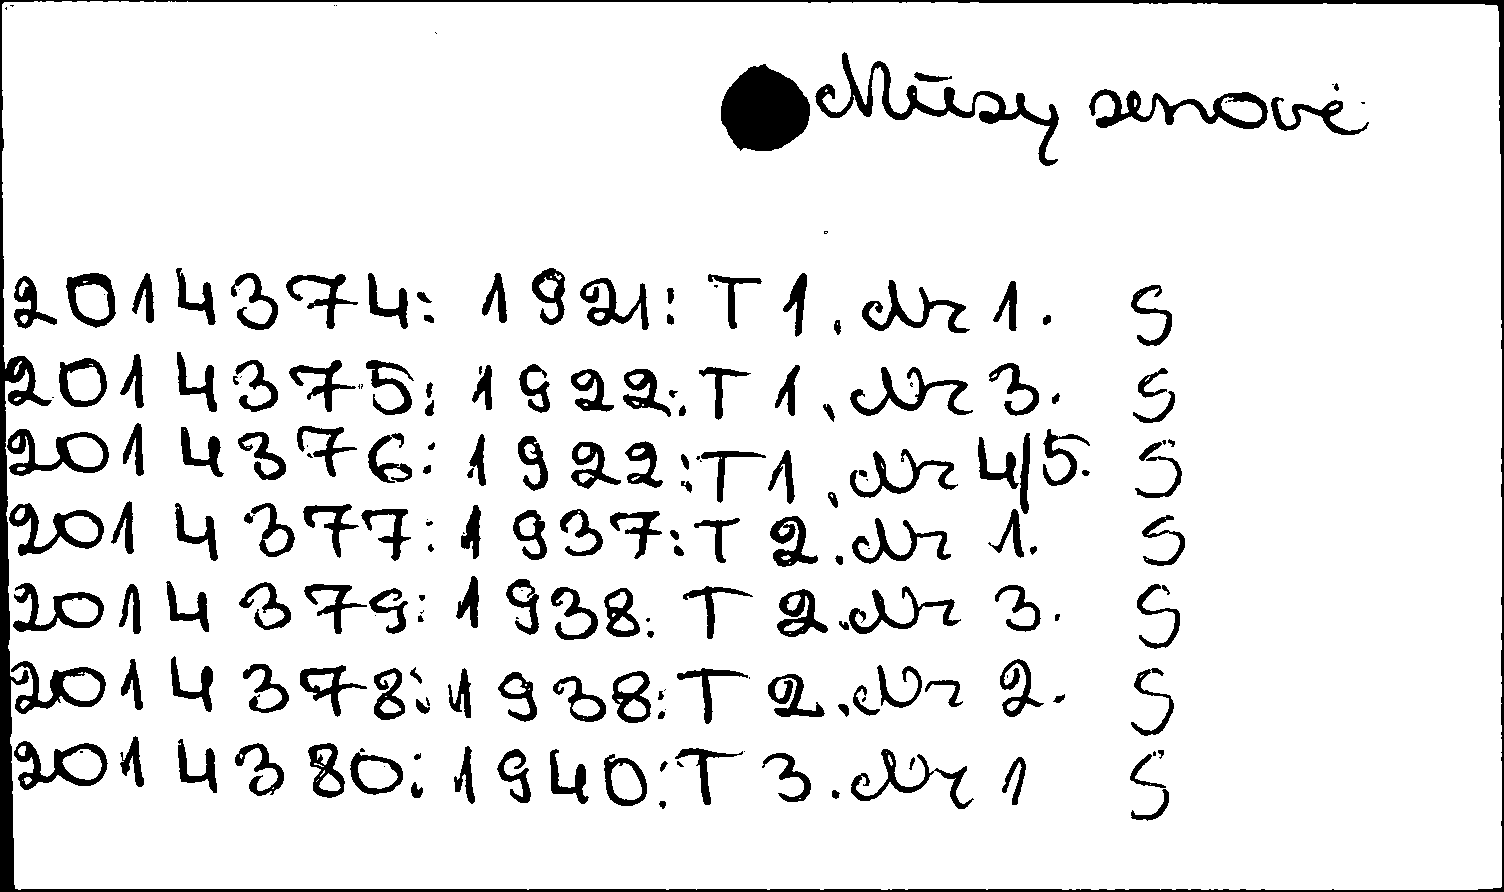 Mūsų senovė
2014374: 1921: T 1. Nr 1. S
2014375: 1922: T 1. Nr 3. S
2014376: 1922: T 1. Nr 4/5. S
2014377: 1937: T 2. Nr 1. S
2014379: 1938: T 2. Nr 3. S
2014378: 1938: T 2. Nr 2. S
2014380: 1940: T 3. Nr 1 S